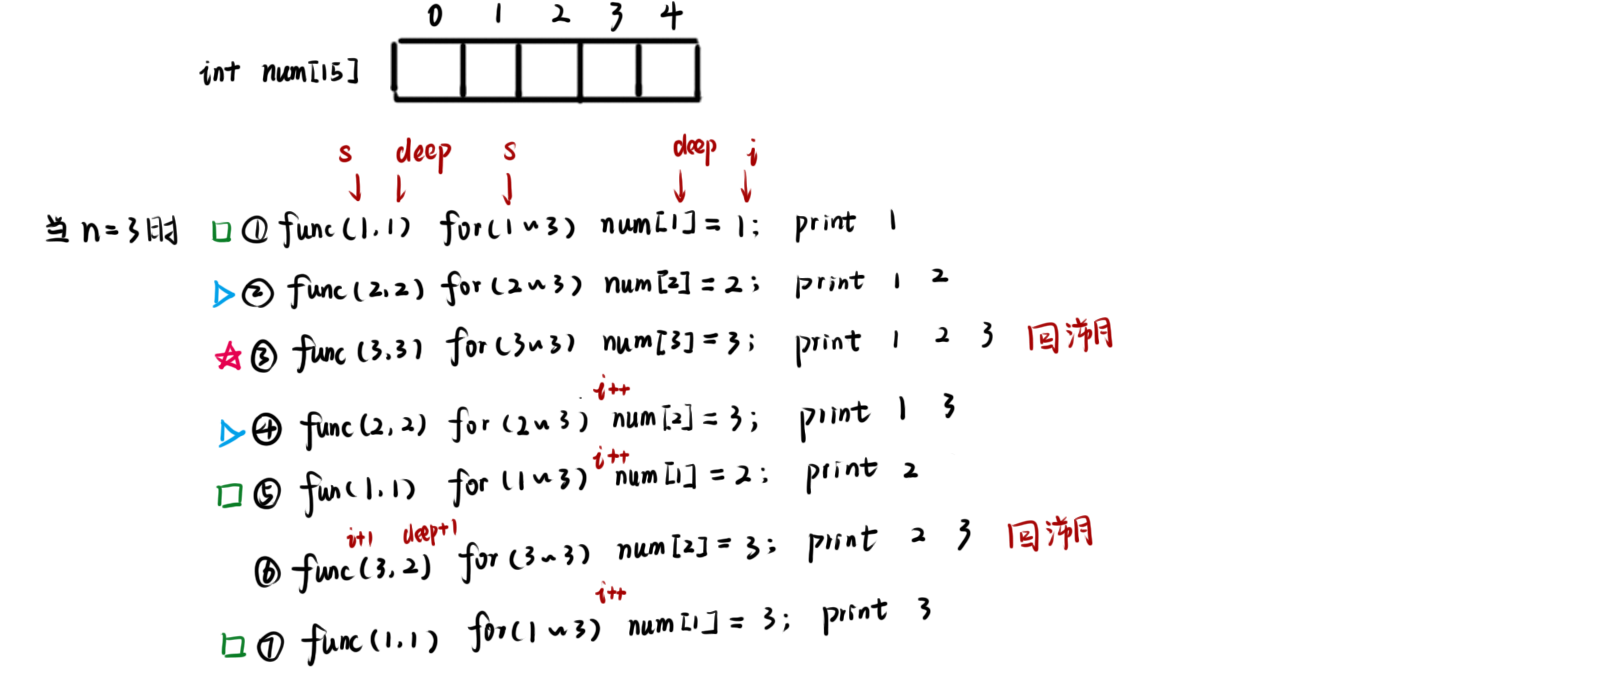 0 1 2 3 4
int num[15]
s deep s deep i
当n=3时 ① func(1,1) for(1~3) num[1]=1; print 1
② func(2,2) for(2~3) num[2]=2; print 1 2
③ func(3,3) for(3~3) num[3]=3; print 1 2 3 回溯
i++
④ func(2,2) for(2~3) num[2]=3; print 1 3
i++
⑤ fun(1,1) for(1~3) num[1]=2; print 2
i+1 deep+1
⑥ func(3,2) for(3~3) num[2]=3; print 2 3 回溯
i++
⑦ func(1,1) for(1~3) num[1]=3; print 3